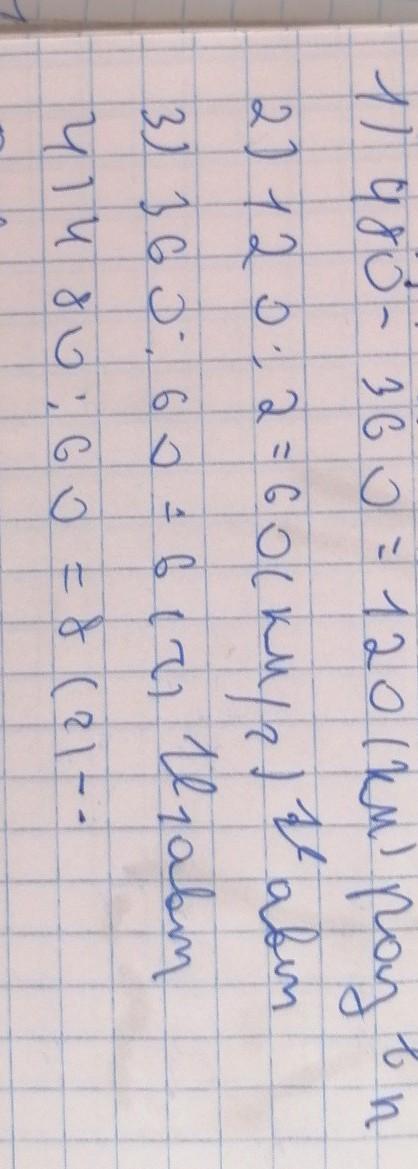 1) 480 - 360 = 120 (км)
2) 120 : 2 = 60 (км/ч) авт
3) 360 : 60 = 6 (ч) t 1 авт
4) 480 : 60 = 8 (ч) - :